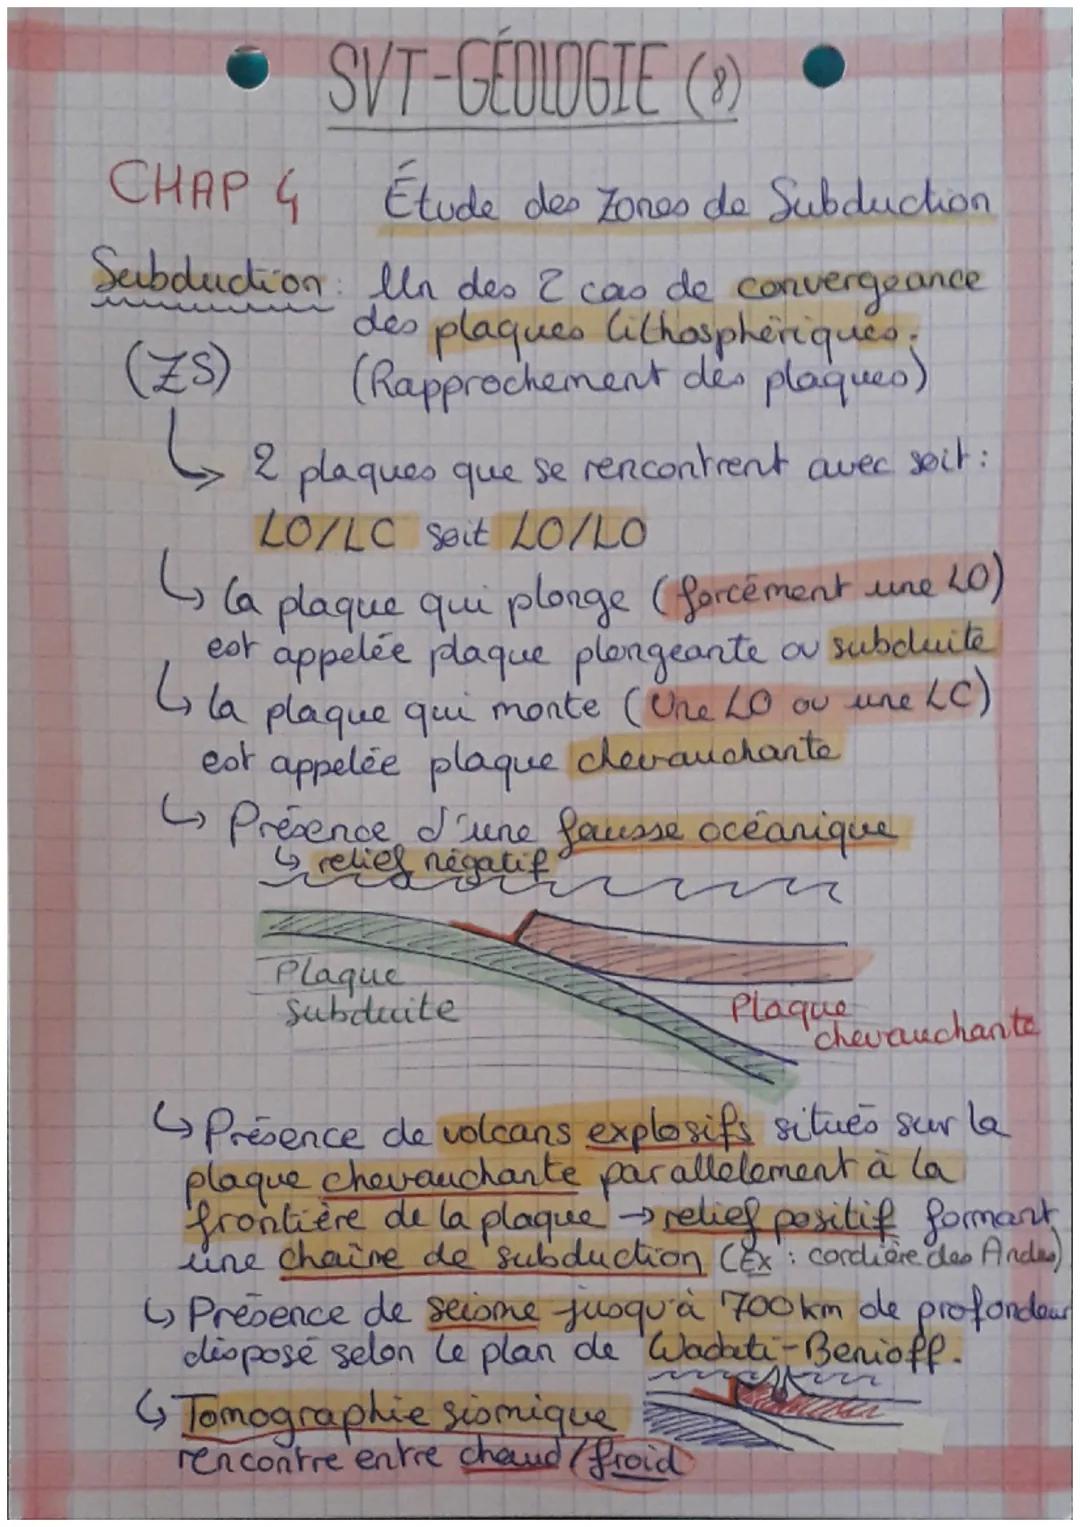 SVT-GÉOLOGIE (8)
CHAP 4 Étude des Zones de Subduction
Subduction : Un des 2 cas de convergeance
des plaques lithosphériques.
(ZS) (Rapprochement des plaques)
↳ 2 plaques que se rencontrent avec soit :
LO/LC soit LO/LO
↳ la plaque qui plonge (forcément une LO)
est appelée plaque plongeante ou subduite
↳ la plaque qui monte (Une LO ou une LC)
est appelée plaque chevauchante
↳ Présence d'une fausse océanique
↳ relief négatif
Plaque
Subduite
Plaque
chevauchante
↳ Présence de volcans explosifs situés sur la
plaque chevauchante parallelement à la
frontière de la plaque → relief positif formant
une chaîne de subduction (Ex : cordière des Andes)
↳ Présence de seisme jusqu'à 700km de profondeur
disposé selon le plan de Wadati-Benioff.
↳ Tomographie sismique
rencontre entre chaud/froid